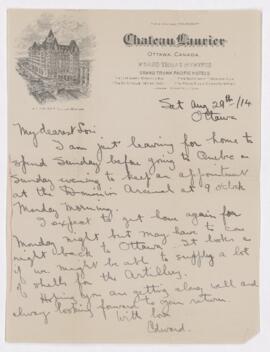 Chateau Laurier
Ottawa, Canada.
Grand Trunk Pacific Hotels
Sat Aug 29th/14
Ottawa
My dearest
I am just leaving for home to
spend Sunday before going to Quebec on
Sunday evening to keep an appointment
at the Dominion Arsenal at 9 o'clock
Monday morning.
I expect to get home again for
Monday night but may have to come
right back to Ottawa. It looks as
if we might be able to supply a lot
of shells for the Artillery.
Hoping you are getting along well and
always looking forward to your return.
With love
Edward.